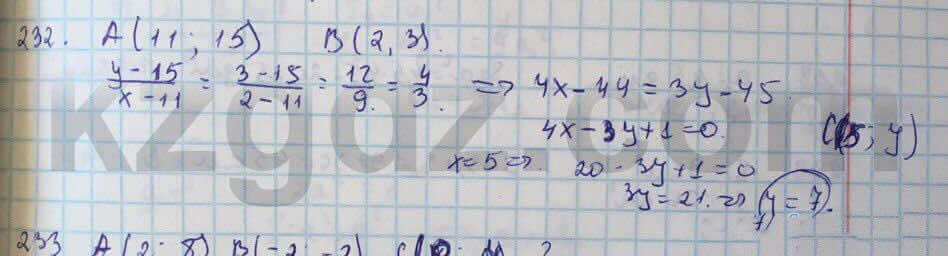 232. A(11; 15) B(2, 3).
(y-15)/(x-11) = (3-15)/(2-11) = 12/9. = 4/3. => 4x-44 = 3y-45.
4x-3y+1=0. C(5; y)
x=5=>. 20-3y+1=0
3y=21.=> y=7.
7)
233 A(2; 8) B(-2
kzgdz.com